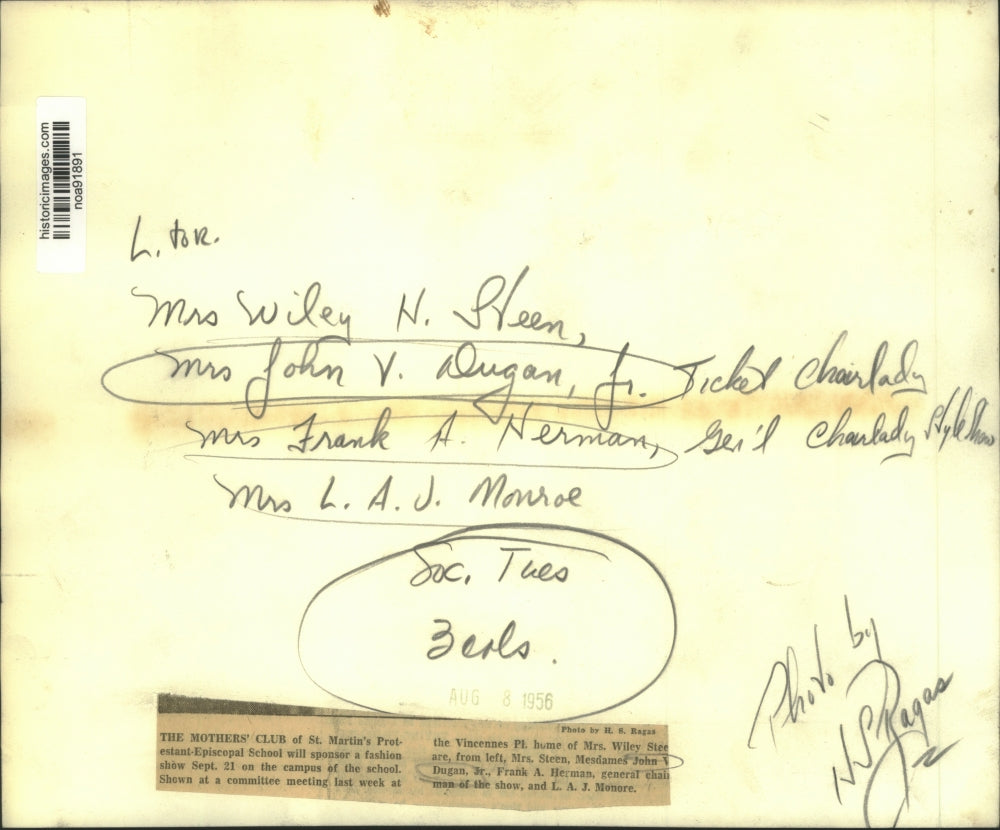 historicimages.com
noa91891
L. to R.
Mrs Wiley H. Steen,
Mrs John V. Dugan, Jr. Ticket Chairlady
Mrs Frank A. Herman, Gen'l Chairlady Style Show
Mrs L. A. J. Monroe
Soc. Tues
3 cols.
AUG 8 1956
Photo by
H S Ragas
Photo by H. S. Ragas
THE MOTHERS' CLUB of St. Martin's Prot-
estant-Episcopal School will sponsor a fashion
show Sept. 21 on the campus of the school.
Shown at a committee meeting last week at
the Vincennes Pl. home of Mrs. Wiley Stee
are, from left, Mrs. Steen, Mesdames John V
Dugan, Jr., Frank A. Herman, general chair
man of the show, and L. A. J. Monore.